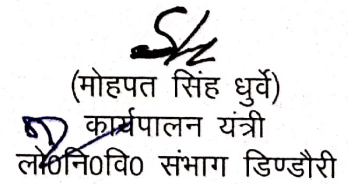 (मोहपत सिंह धुर्वे)
कार्यपालन यंत्री
लो0नि0वि0 संभाग डिण्डौरी